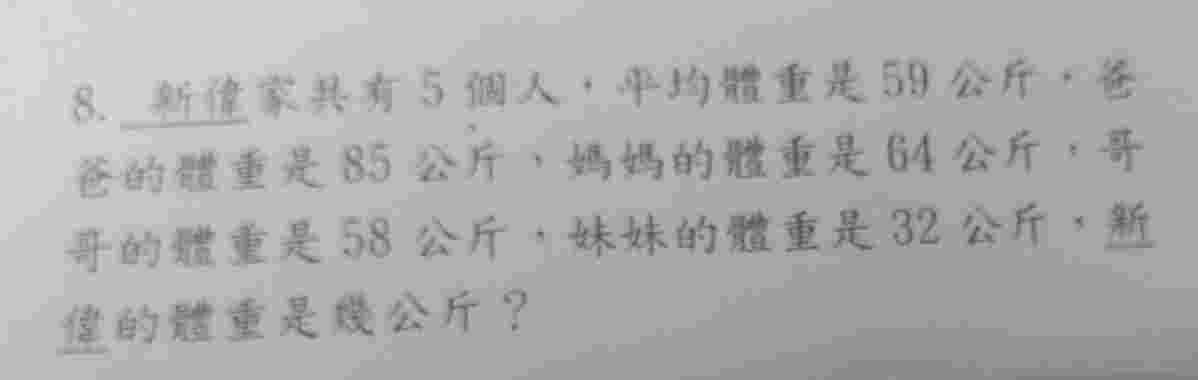 8. 新偉家共有 5 個人，平均體重是 59 公斤，爸
爸的體重是 85 公斤、媽媽的體重是 64 公斤，哥
哥的體重是 58 公斤，妹妹的體重是 32 公斤，新
偉的體重是幾公斤？